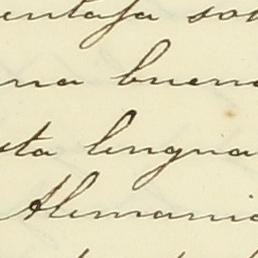 entaja so
na buena
sta lengua
Alemania